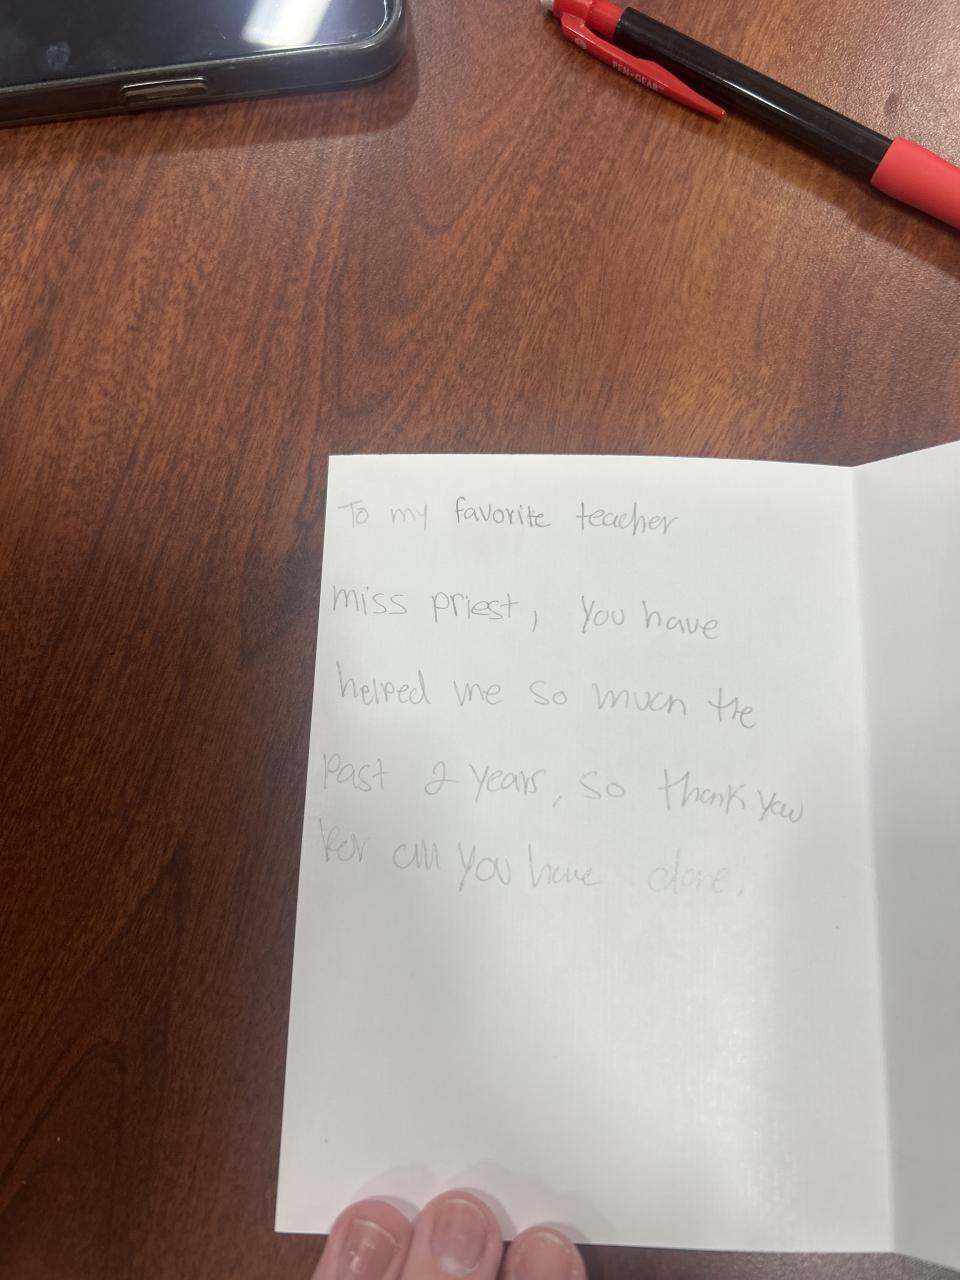 PEN+GEAR™
To my favorite teacher
miss priest, You have
helped me so much the
Past 2 years, so thank you
for all you have done.